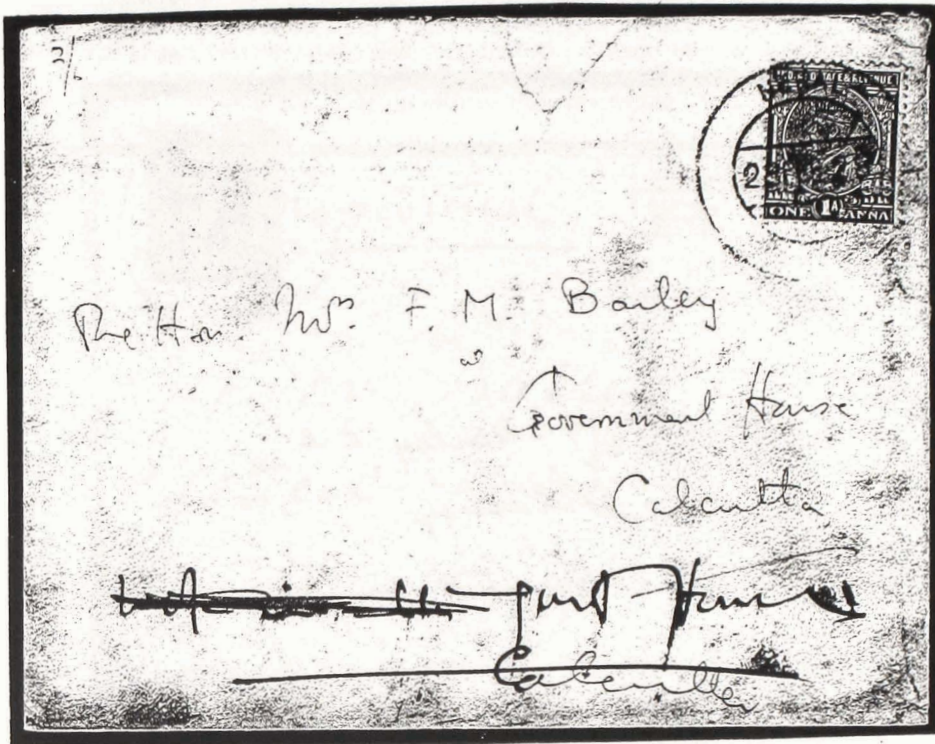 2/
POSTAGE & REVENUE
2
ONE 1A ANNA
The Hon. Mrs. F. M. Bailey
Government House
Calcutta
Govt House
Calcutta